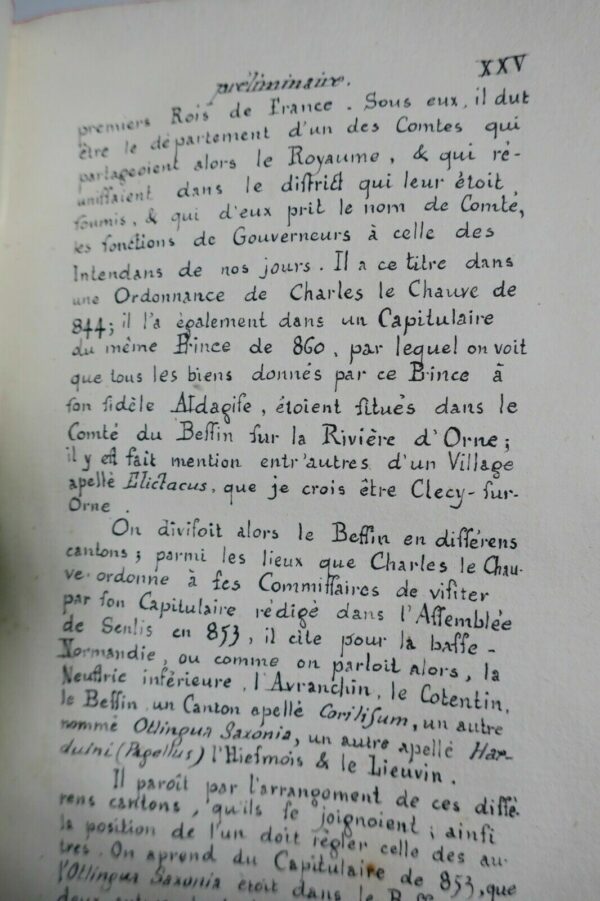 préliminaire.
XXV
premiers Rois de France. Sous eux, il dut
être le département d'un des Comtes qui
partageoient alors le Royaume, & qui ré-
uniſſaient dans le diſtrict qui leur étoit
ſoumis, & qui d'eux prit le nom de Comté,
les fonctions de Gouverneurs à celle des
Intendans de nos jours. Il a ce titre dans
une Ordonnance de Charles le Chauve de
844; il l'a également dans un Capitulaire
du même Prince de 860, par lequel on voit
que tous les biens donnés par ce Prince à
ſon fidèle Aldagiſe, étoient ſitués dans le
Comté du Beſſin ſur la Rivière d'Orne;
il y eſt fait mention entr'autres d'un Village
apellé Elictacus, que je crois être Clecy-ſur-
Orne.
On diviſoit alors le Beſſin en différens
cantons; parmi les lieux que Charles le Chau-
ve ordonne à ſes Commiſſaires de viſiter
par ſon Capitulaire rédigé dans l'Aſſemblée
de Senlis en 853, il cite pour la baſſe-
Normandie, ou comme on parloit alors, la
Neuſtrie inférieure, l'Avranchin, le Cotentin,
le Beſſin un Canton apellé Coriliſum, un autre
nommé Otlingua Saxonia, un autre apellé Har-
duini (Pagellus) l'Hieſmois & le Lieuvin.
Il paroît par l'arrangement de ces diffé
rens cantons, qu'ils ſe joignoient; ainſi
la position de l'un doit règler celle des au-
tres. On aprend du Capitulaire de 853, que
l'Otlingua Saxonia étoit dans le